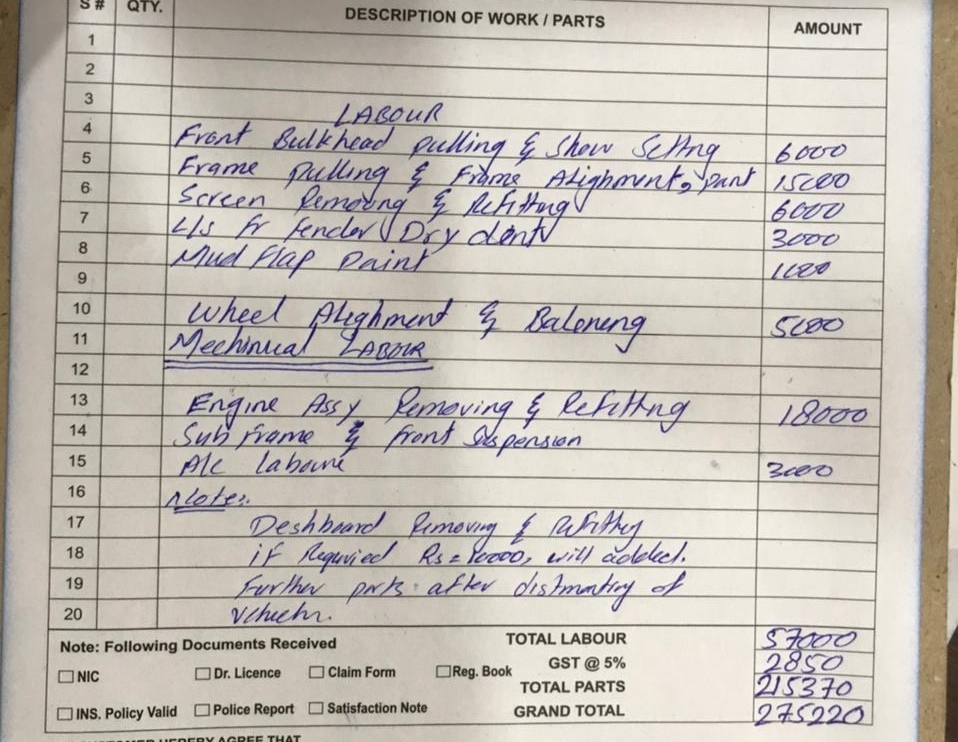 S # QTY. DESCRIPTION OF WORK / PARTS AMOUNT
1
2
3
LABOUR
4 Front Bulkhead pulling & Show Setting 6000
5 Frame pulling & Frame Alighment, paint 15000
6 Screen Removing & Refitting 6000
7 L/s Fr fender Dry dent 3000
8 Mud Flap Paint 1000
9
10 Wheel Alighment & Balening 5000
11 Mechinical LABOUR
12
13 Engine Assy Removing & Refitting 18000
14 Sub frame & front Suspension
15 A/c laboure 3000
16 Note:
17 Deshboard Removing & Refitting
18 if Requried Rs = 10000, will added.
19 Further parts after distmanting of
20
Note: Following Documents Received TOTAL LABOUR 57000
GST @ 5% 2850
NIC Dr. Licence Claim Form Reg. Book
TOTAL PARTS 215370
INS. Policy Valid Police Report Satisfaction Note GRAND TOTAL 275220
CUSTOMER HEREBY AGREE THAT